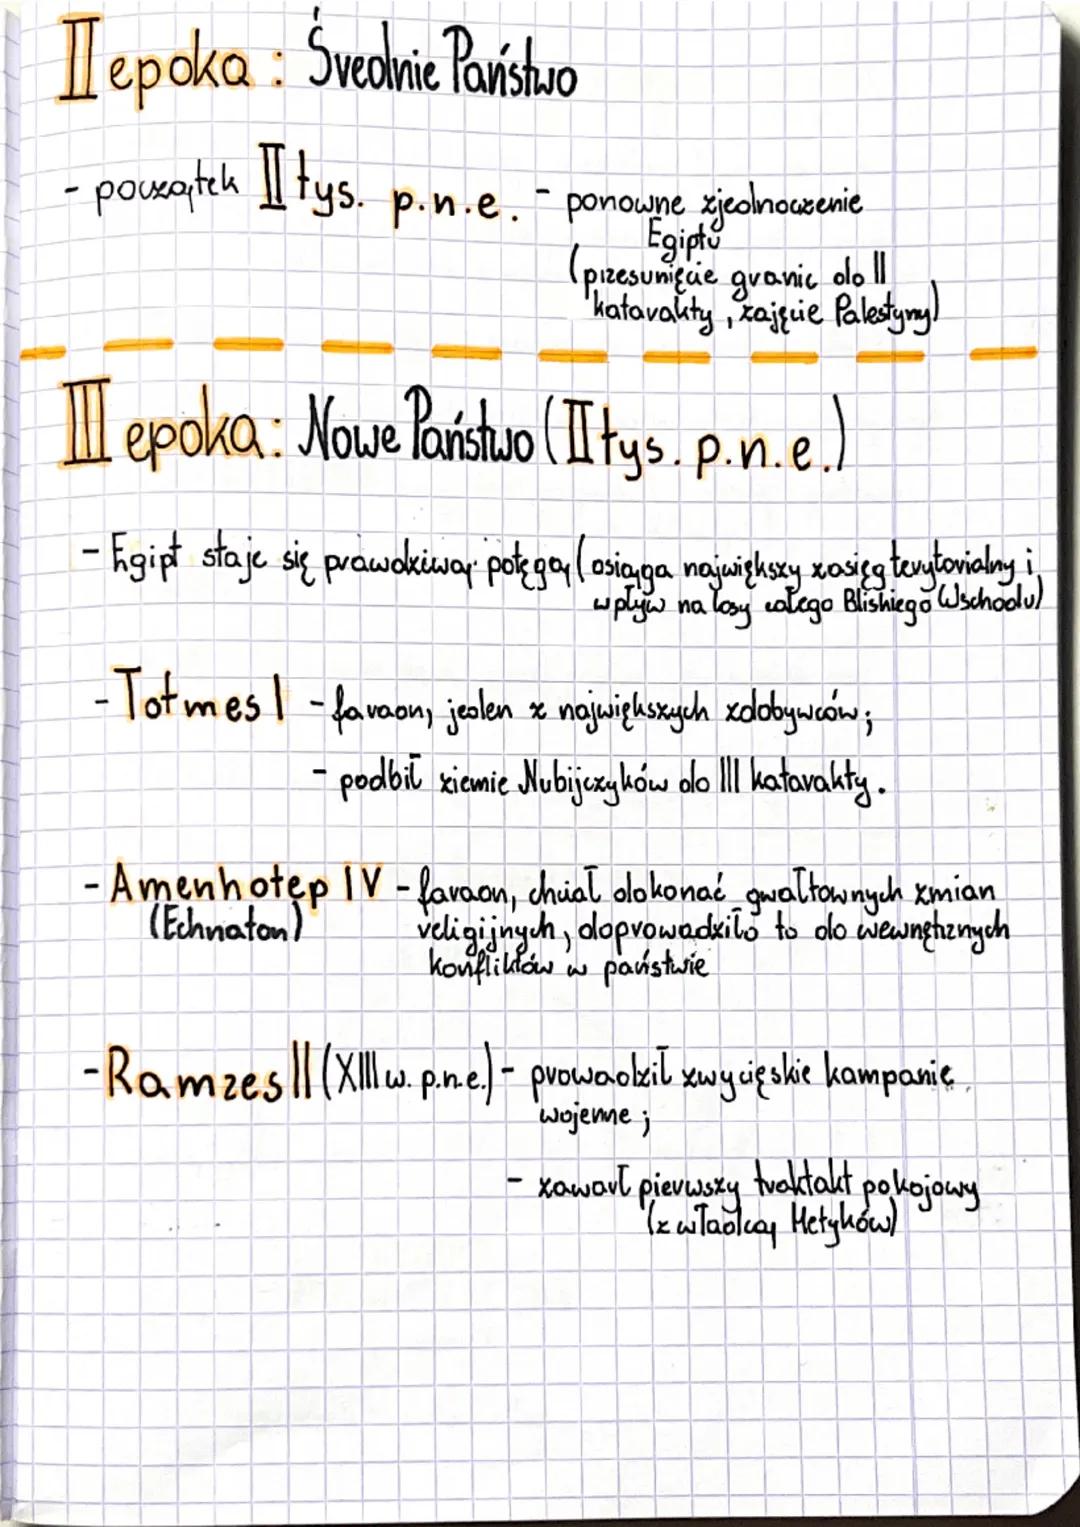 II epoka: Średnie Państwo
- początek II tys. p.n.e. - ponowne zjednoczenie
Egiptu
(przesunięcie granic do II
katarakty, zajęcie Palestyny)
III epoka: Nowe Państwo (II tys. p.n.e.)
- Egipt staje się prawdziwą potęgą (osiąga największy zasięg terytorialny i
wpływ na losy całego Bliskiego Wschodu)
- Totmes I - faraon, jeden z największych zdobywców;
- podbił ziemie Nubijczyków do III katarakty.
- Amenhotep IV - faraon, chciał dokonać gwałtownych zmian
(Echnaton) religijnych, doprowadziło to do wewnętrznych
konfliktów w państwie
- Ramzes II (XIII w. p.n.e.) - prowadził zwycięskie kampanie
wojenne;
- zawarł pierwszy traktakt pokojowy
(z władcą Hetyków)